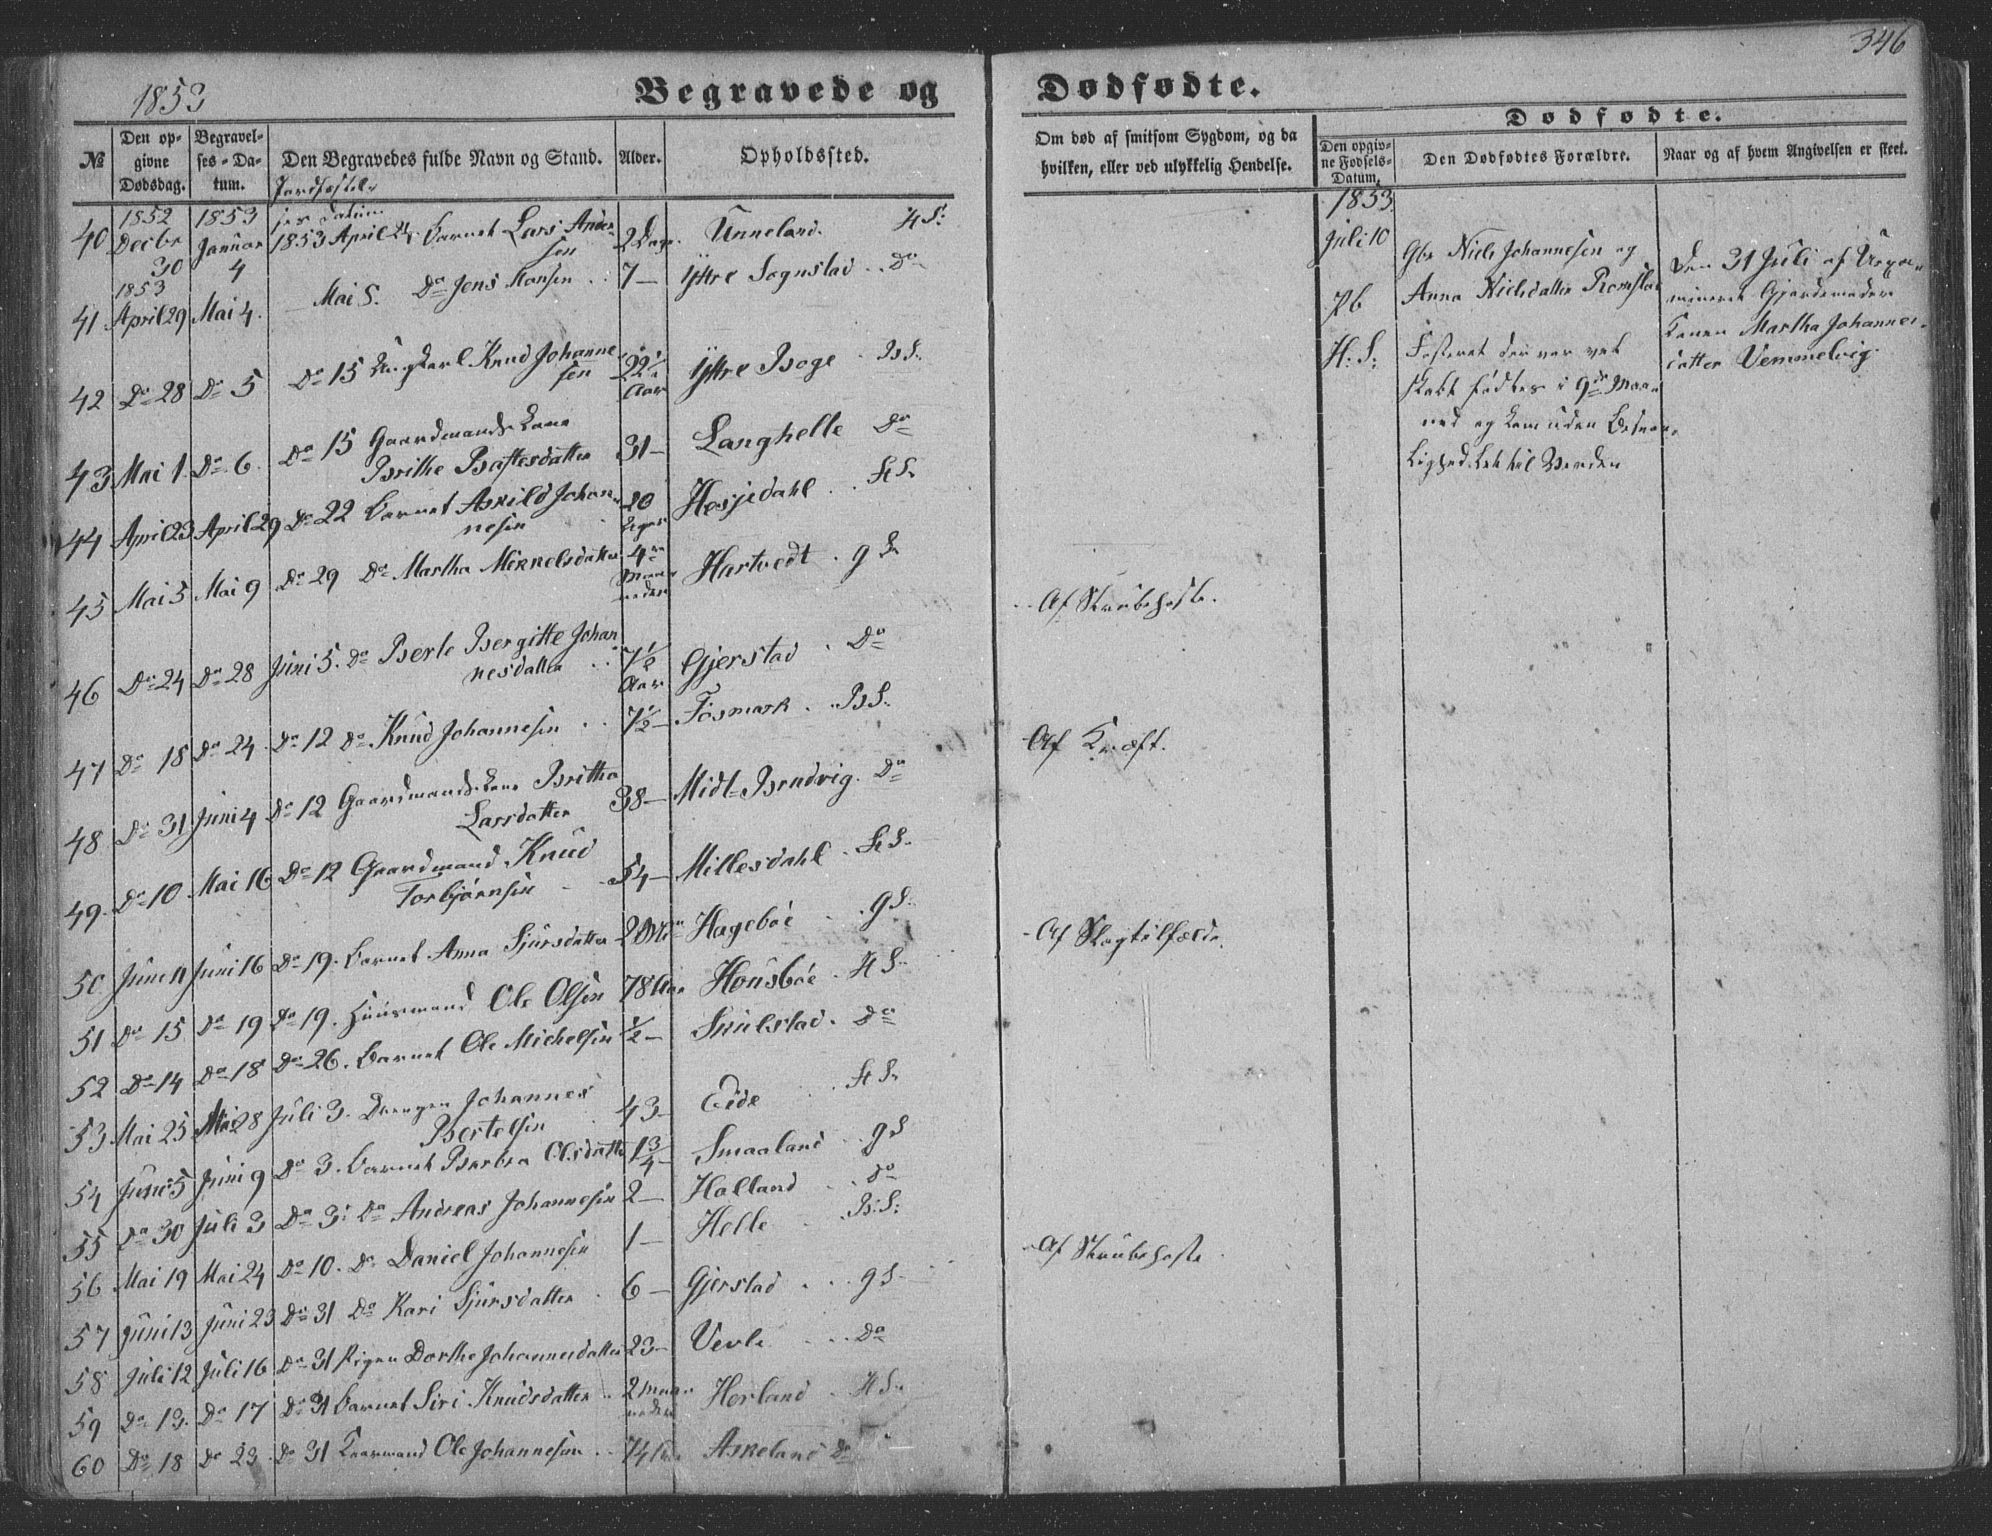 346
1853
Begravede og Dødfødte.
Dødfødte.
№
Den opgivne Dødsdag.
Begravelses-Datum.
Den Begravedes fulde Navn og Stand.
Alder.
Opholdssted.
Om død af smitsom Sygdom, og da hvilken, eller ved ulykkelig Hendelse.
Den opgivne Fødsels-Datum.
Den Dødfødtes Forældre.
Naar og af hvem Angivelsen er skeet.
40 1852 Decbr 30 1853 Januar 4 1853 April 24 Barnet Lars Andersen 2 Dage Unneland. H S:
41 1853 April 29 Mai 4. Mai 5. Do Jens Monsen 7 — Yttre Sognstad Do
42 Do 28 Do 5 Do 15 Ungkarl Knud Johannesen 22½ Aar Yttre Boge B S.
43 Mai 1. Do 6. Do 15 Gaardmandskone Brithe Baltesdatter 31 — Langhelle Do
44 April 23 April 29 Do 22 Barnet Askild Johannesen 20 Uger Hesjedahl St S.
45 Mai 5 Mai 9 Do 29 Do Martha Mikkelsdatter 4 Maaneder Hartvedt g S.
46 Do 24 Do 28 Juni 5. Do Berle Bergitte Johannesdatter 7½ Aar Gjerstad Do Af Strubehoste.
47 Do 18 Do 24 Do 12 Do Knud Johannesen 7½ — Fosmark B S.
48 Do 31 Juni 4 Do 12 Gaardmandskone Britha Larsdatter 38 — Midt-Brudvig. Do Af Kræft.
49 Do 10 Mai 16 Do 12 Gaardmand Knud Torbjørnsen 54 — Millesdahl St S.
50 Juni 11 Juni 16 Do 19. Barnet Anna Sjursdatter Hagebøe g S. Af Slagtilfælde.
51 Do 15 Do 19 Do 19. Huusmand Ole Olsen 78 Aar Housbøe H S.
52 Do 14 Do 18 Do 26. Barnet Ole Michelsen ½ — Do
53 Mai 25 Mai 28 Juli 3. Drengen Johannes Bertelsen 43 — Eide St S.
54 Juni 5 Juni 9 Do 3. Barnet Barbra Olsdatter 1¾ — Smaaland g S
55 Do 30 Juli 3 Do 3: Do Andreas Johannesen 2 — Halland Do
56 Mai 19 Mai 24 Do 10. Do Daniel Johannesen 1 — Helle B: S:
57 Juni 13 Juni 23 Do 31 Do Kari Sjursdatter 6 — Gjerstad g S. Af Strubehoste
58 Juli 12 Juli 16 Do 31 Pigen Dorthe Johannesdatter 23 — Vevle Do
59 Do 13. Do 17 Do 31 Barnet Siri Knudsdatter 2 Maaneder Horland H S.
60 Do 18 Do 23. Do 31 Kaarmand Ole Johannesen 74 Aar Askeland Do
1853
Juli 10
H. S:
Gbr Niels Johannesen og
Anna Nielsdatter Romslo
Fosteret der var vel
skabt fødtes i 9de Maaned
og kom uden
til Verden
Den 31 Juli af Uexamineret
Gjordemoder
Konen Martha Johannesdatter
Vemmelvig.